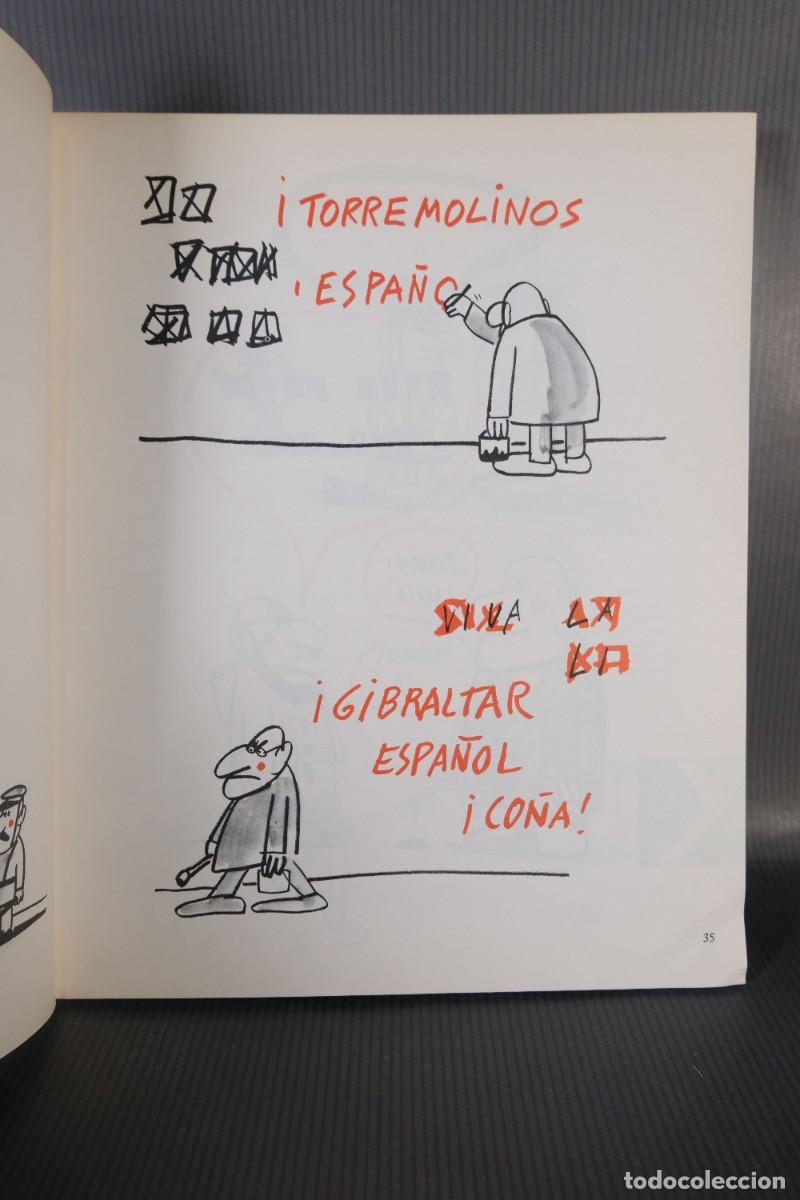 ¡TORREMOLINOS
¡ESPAÑO
VIVA LA
LI
¡GIBRALTAR
ESPAÑOL
¡COÑA!
35
todocoleccion